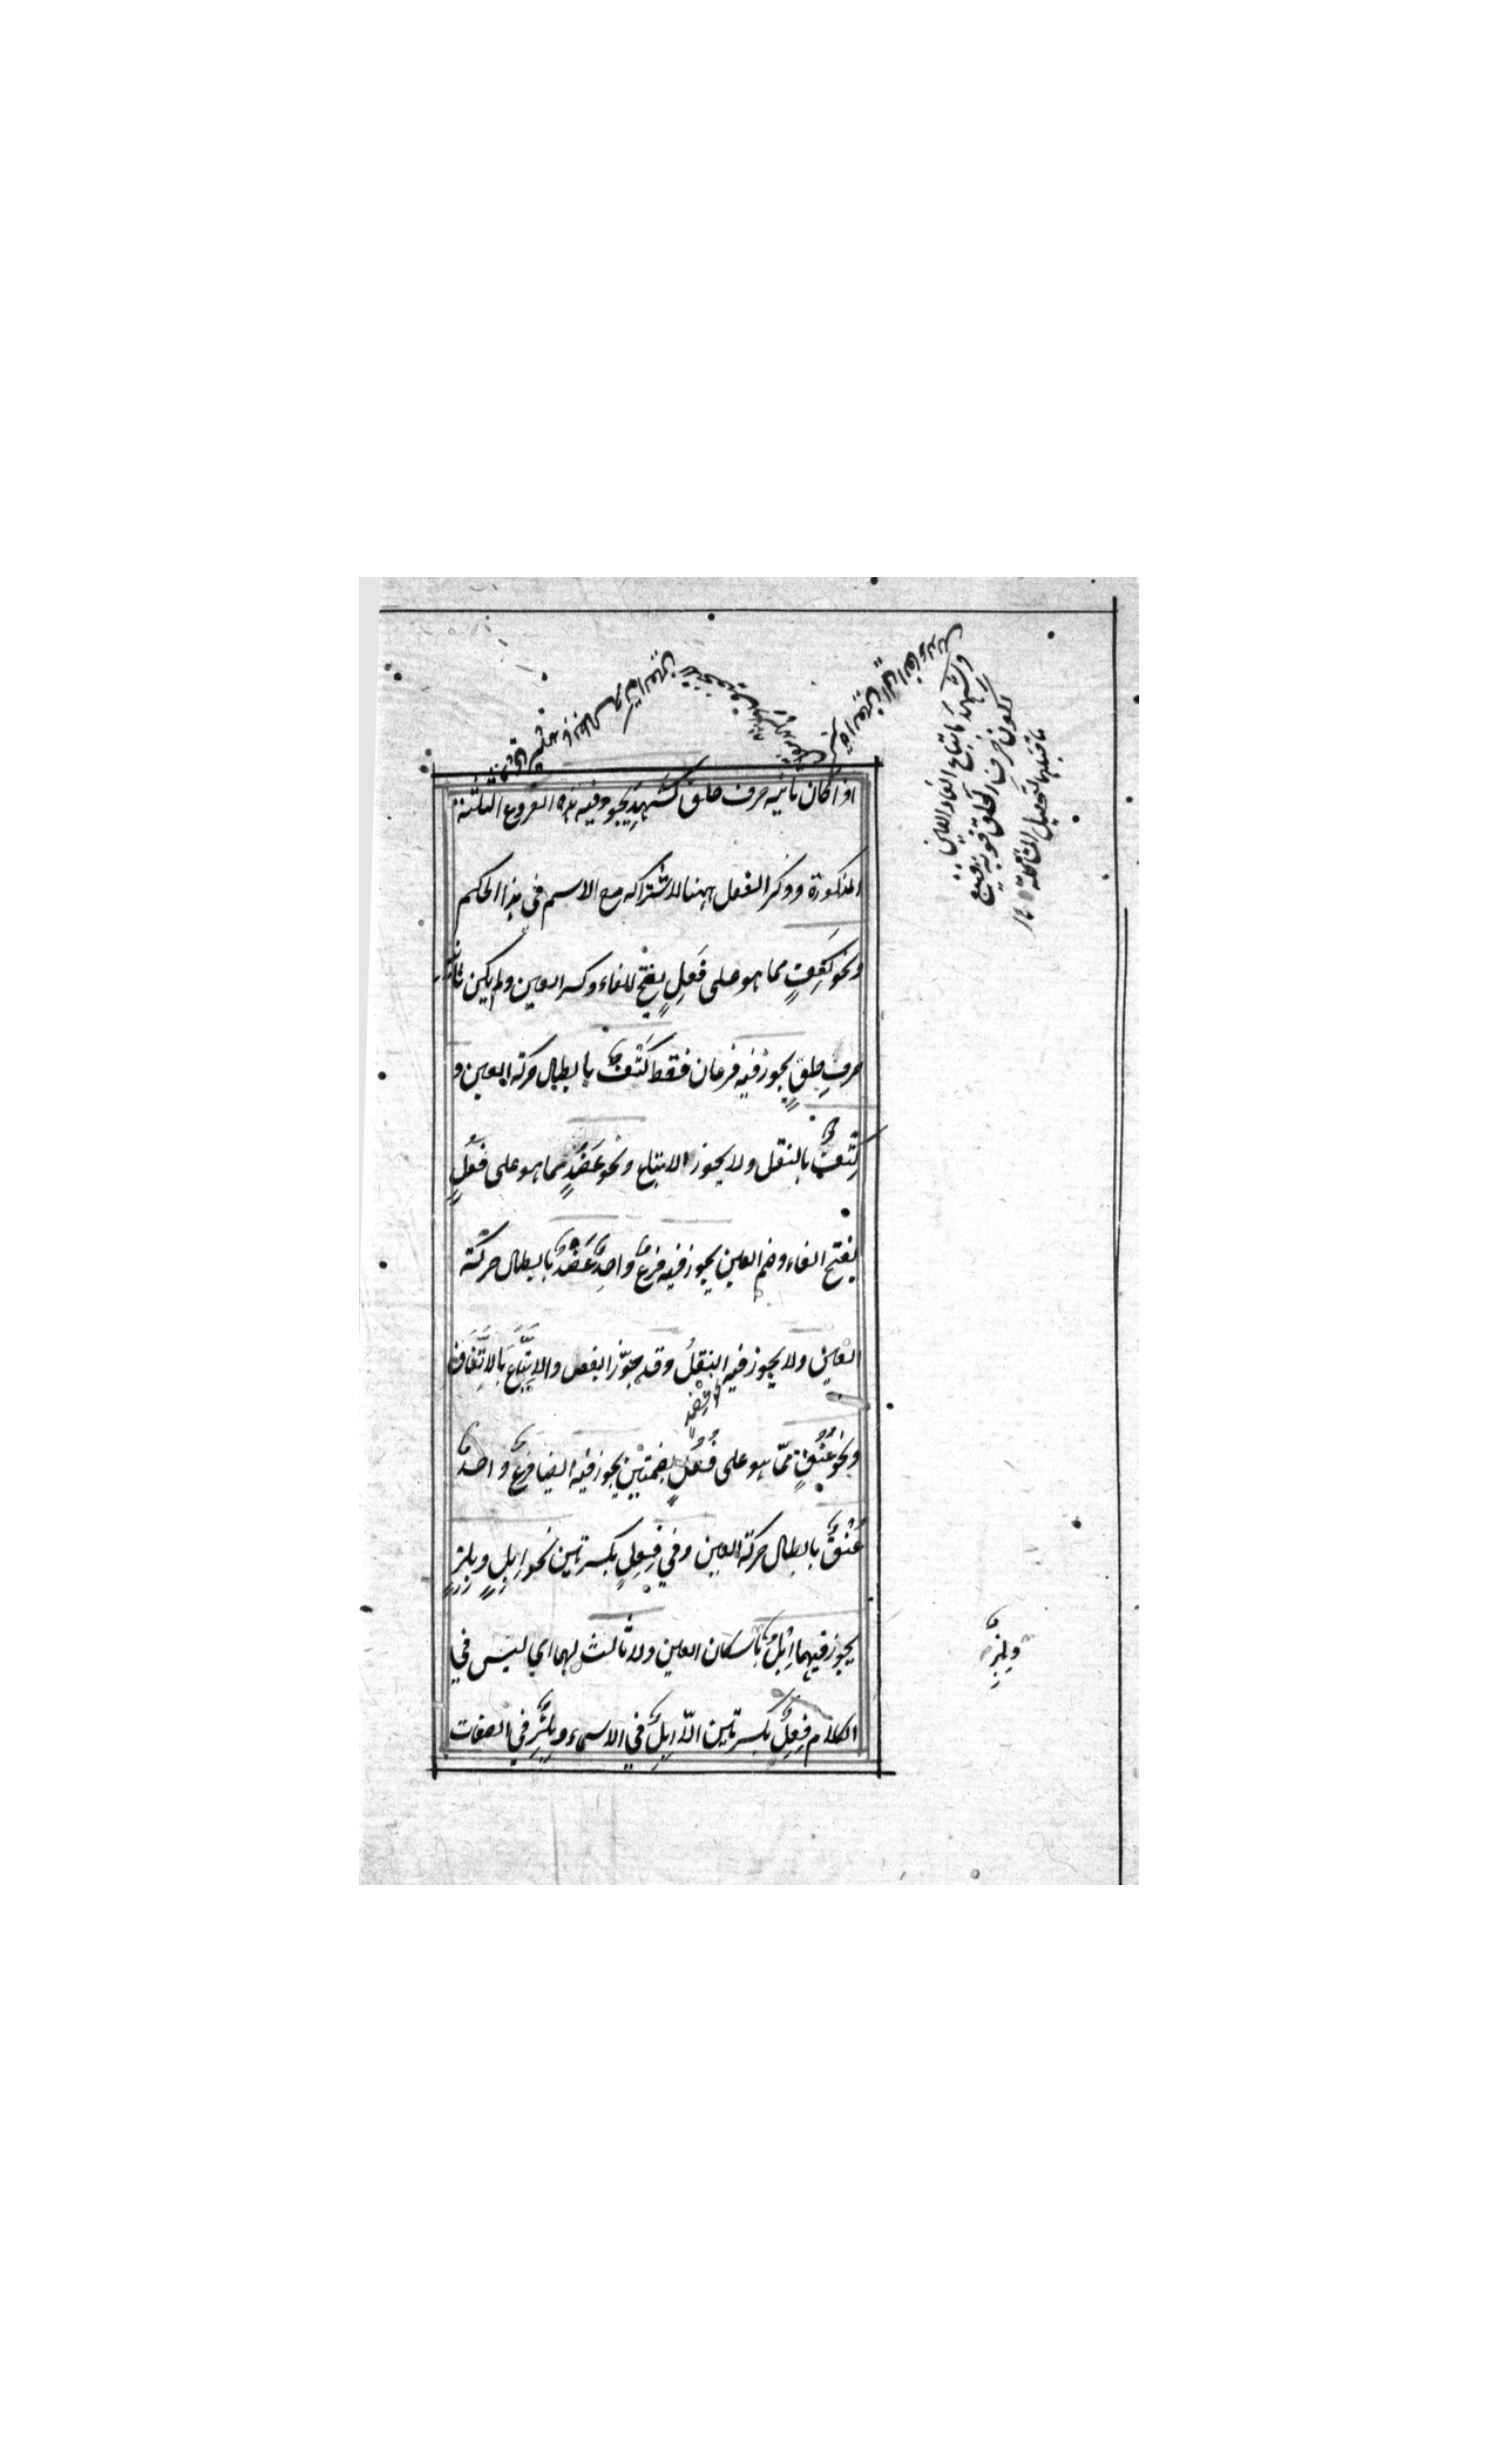 اذا كان ثانيه حرف حلق كَشَهِدَ يجوز فيه هذه الفروع الثلثة
المذكورة وذكر الفعل ههنا لاشتراكه مع الاسم في هذا الحكم
ونحو كَتِفٍ مما هو على فَعِلٍ بفتح الفاء وكسر العين ولم يكن ثانيه
حرفِ حلقٍ يجوز فيه فرعان فقط كَتْفٌ بابطال حركة العين و
كِتْفٌ بالنقل ولا يجوز الاتباع ونحو عَضُدٍ مما هو على فَعُلٍ
بفتح الفاء وضم العين يجوز فيه فرعٌ واحدٌ عَضْدٌ بابطال حركة
العين ولا يجوز فيه النقلُ وقد جوّز البعض والاِتّبَاعَ بالاتّفاق
ونحو عُنُقٍ ممّا هو على فُعُلٍ بضمتين يجوز فيه ايضا فرعٌ واحدٌ
عُنْقٌ بابطال حركة العين وفي فِعِلٍ بكسرتين نحو اِبِلٍ وبِلِزٍ
يجوز فيهما اِبْلٌ باسكان العين ولا ثالث لهما اي ليس في
الكلام فِعِلٌ بكسرتين الّا اِبِلٌ في الاسماء وبِلِزٌ في الصفات
وشِهِدَ باتباع الفاء العين
لكون حرف الحلق قوية فتتبع
ما قبلها لتحصيل المشاكلة ١٢
وبِلْزٌ